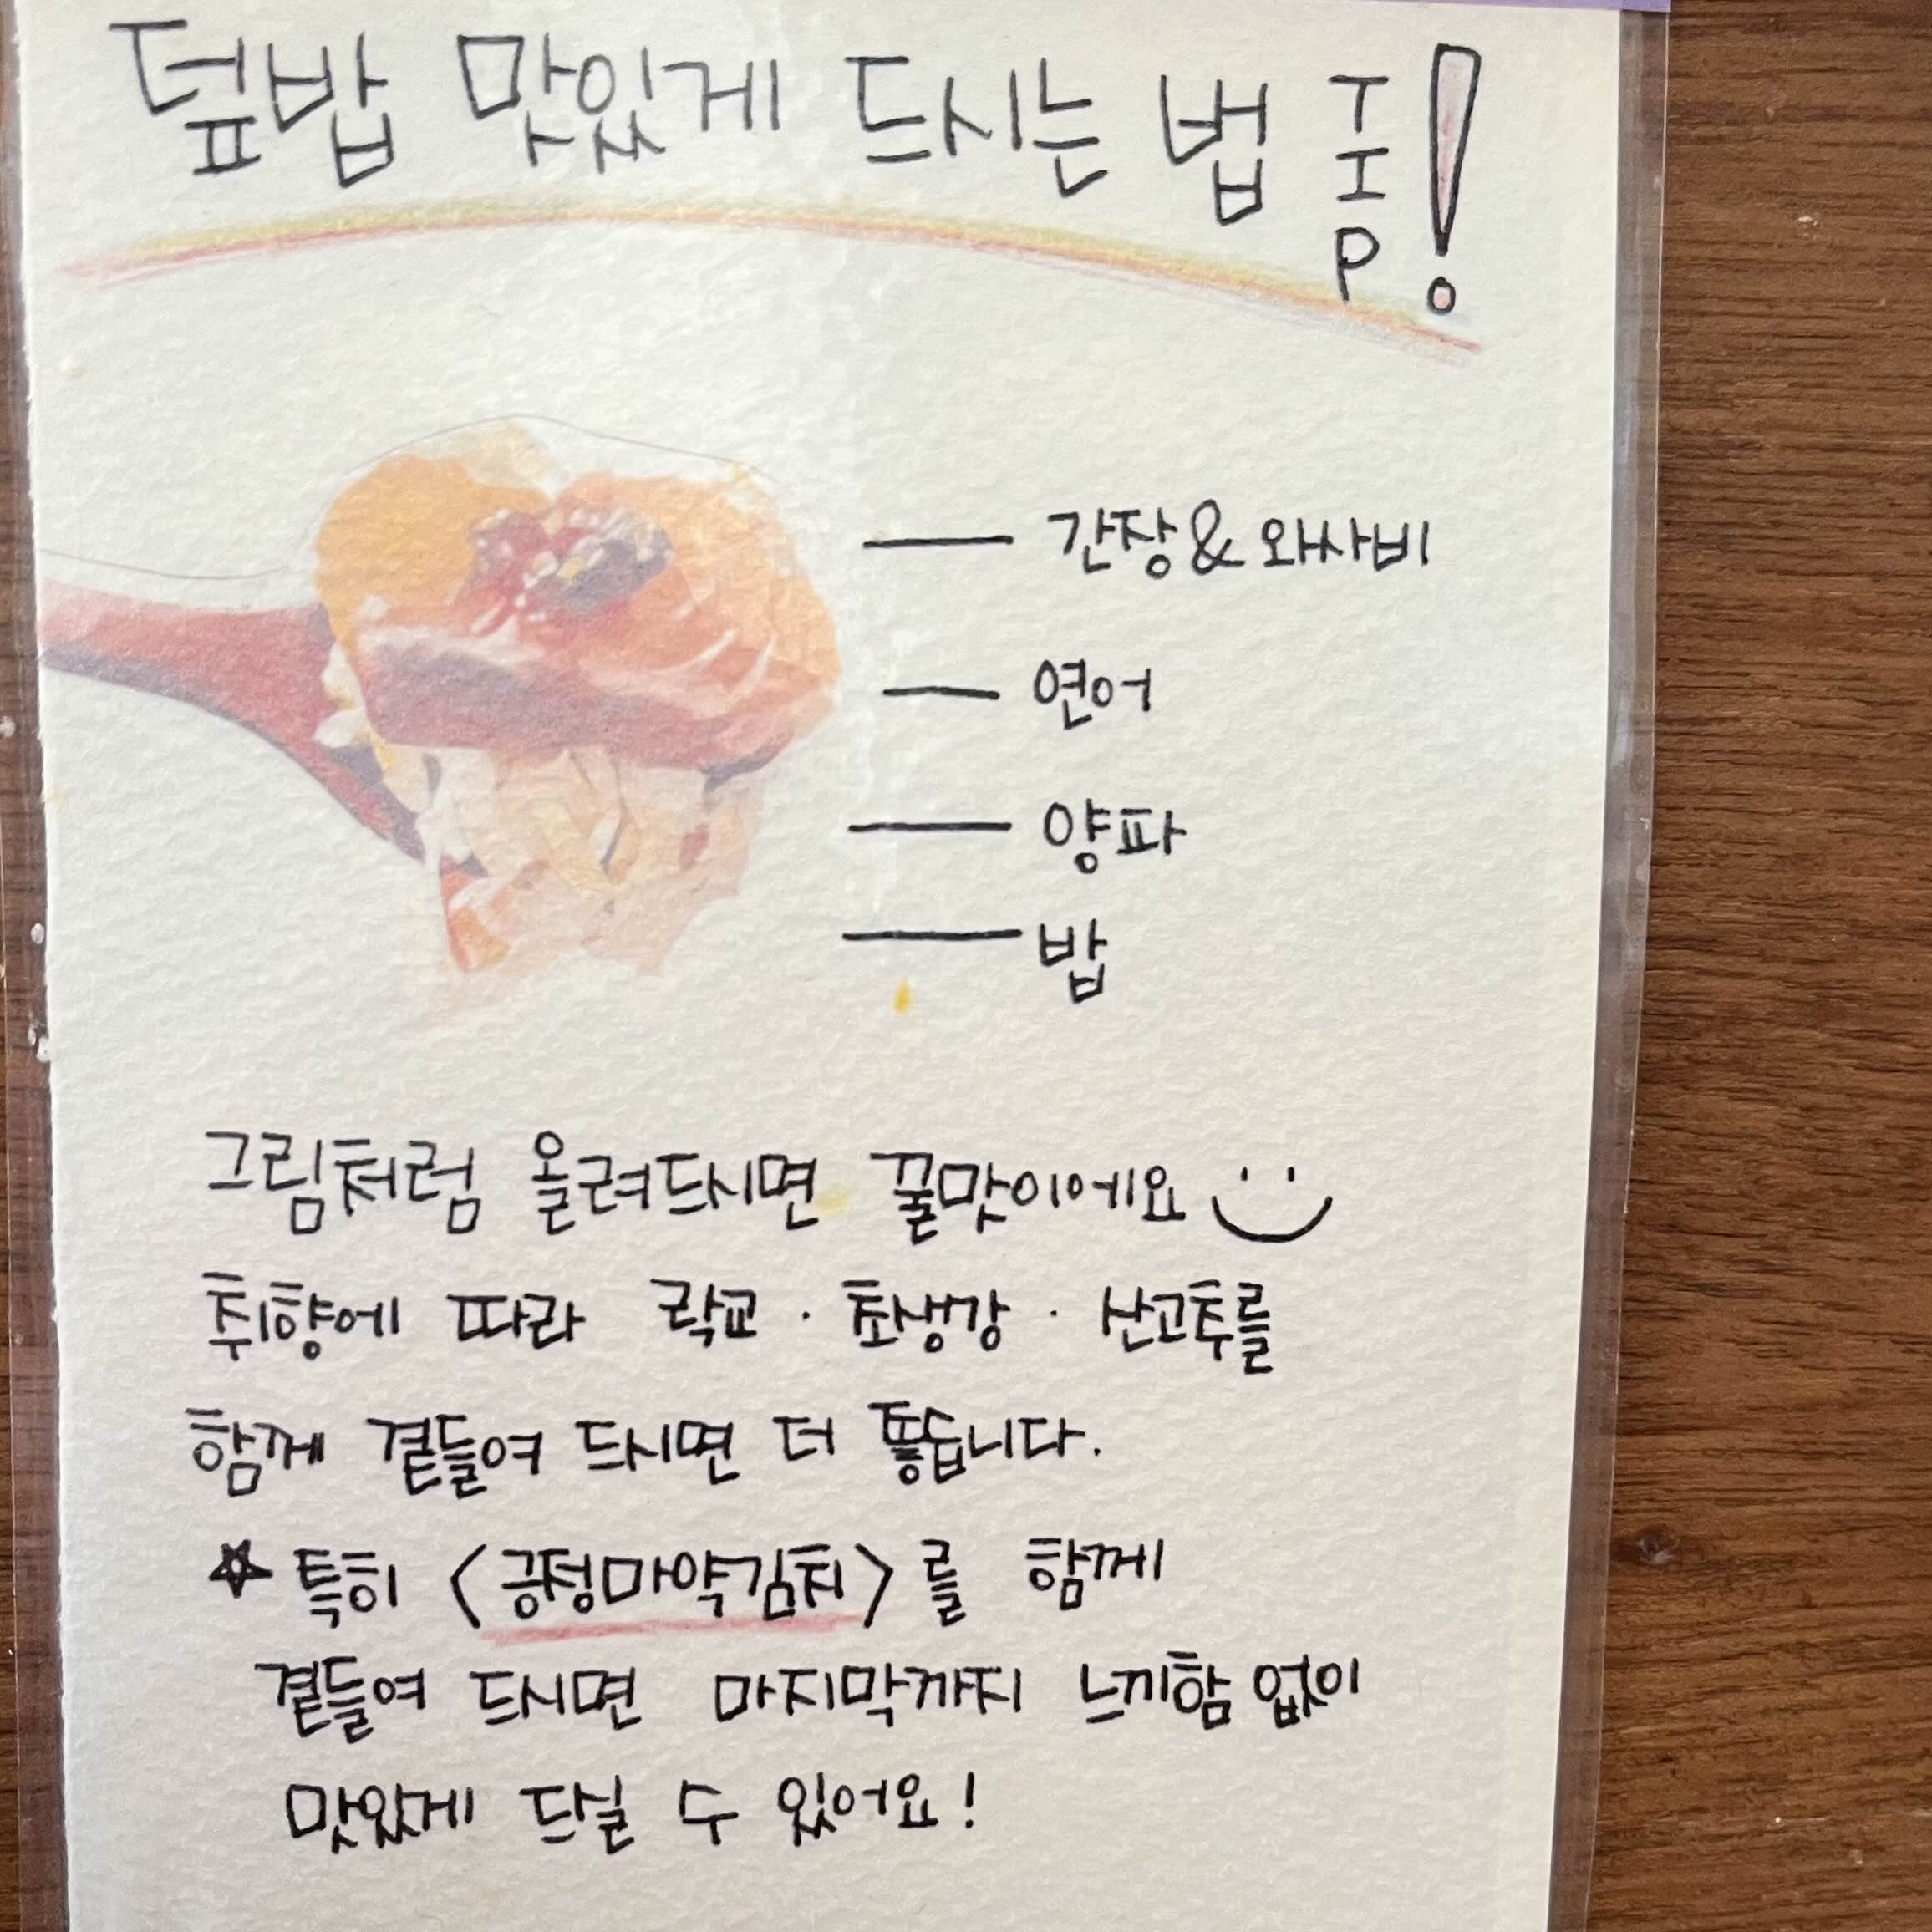 덮밥 맛있게 드시는 법 TIP!
간장&와사비
연어
양파
밥
그림처럼 올려드시면 꿀맛이에요
취향에 따라 락교 · 초생강 · 산고추를
함께 곁들여 드시면 더 좋습니다.
☆ 특히 〈긍정마약김치〉를 함께
곁들여 드시면 마지막까지 느끼함 없이
맛있게 드실 수 있어요!